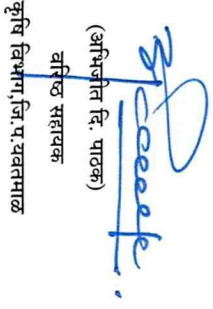 (अभिजीत दि. पाठक)
वरिष्ठ सहायक
कृषि विभाग,जि.प.यवतमाळ